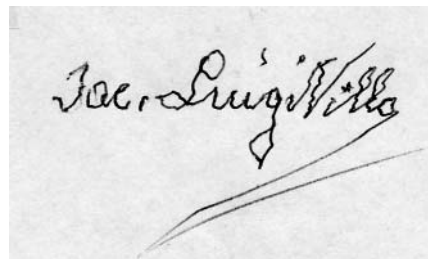 Sac. Luigi Villa